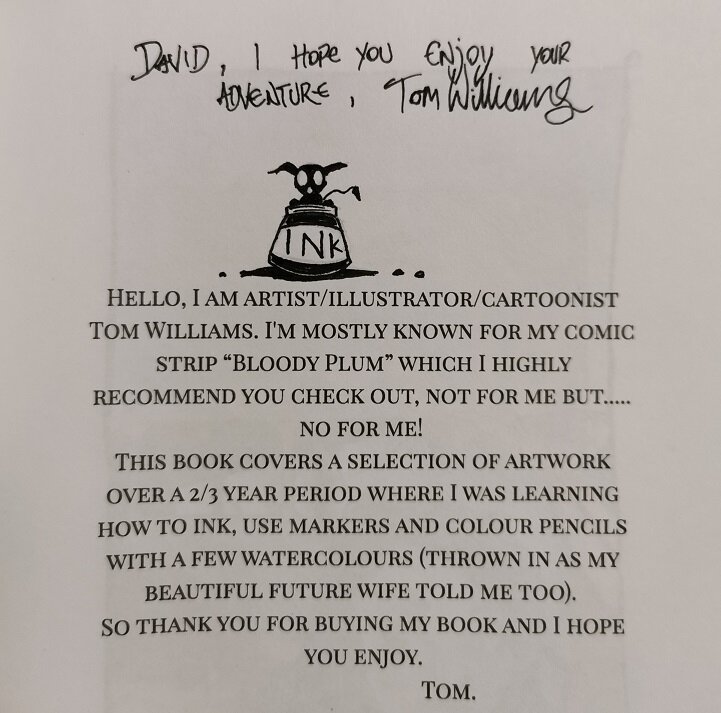 DAVID, I HOPE YOU ENJOY YOUR
ADVENTURE, TOM Williams
INK
HELLO, I AM ARTIST/ILLUSTRATOR/CARTOONIST
TOM WILLIAMS. I'M MOSTLY KNOWN FOR MY COMIC
STRIP “BLOODY PLUM” WHICH I HIGHLY
RECOMMEND YOU CHECK OUT, NOT FOR ME BUT.....
NO FOR ME!
THIS BOOK COVERS A SELECTION OF ARTWORK
OVER A 2/3 YEAR PERIOD WHERE I WAS LEARNING
HOW TO INK, USE MARKERS AND COLOUR PENCILS
WITH A FEW WATERCOLOURS (THROWN IN AS MY
BEAUTIFUL FUTURE WIFE TOLD ME TOO).
SO THANK YOU FOR BUYING MY BOOK AND I HOPE
YOU ENJOY.
TOM.